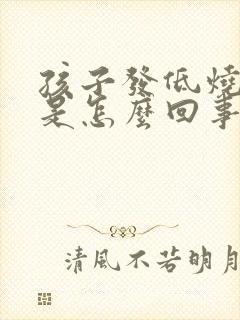 孩子發低燒
是怎麼回事
清風不若明月